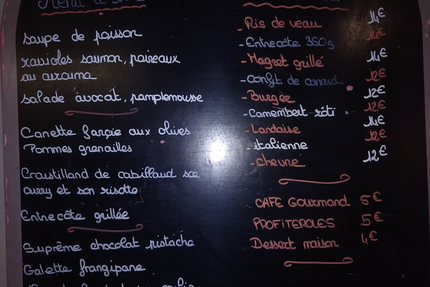 soupe de poisson
ravioles saumon, poireaux
au curcuma
salade avocat, pamplemousse
Canette farçie aux olives
Pommes grenailles
Croustilland de cabillaud sce
curry et son risotto
Entrecôte grillée
Suprême chocolat pistache
Galette frangipane
- Ris de veau 14€
- Entrecôte 350g
- Magret grillé 14€
- Confit de canard 12€
- Burger 12€
- Camembert rôti 12€
- Landaise 14€
- italienne 12€
- chevre 12€
CAFE Gourmand 5€
PROFITEROLES 5€
Dessert maison 4€